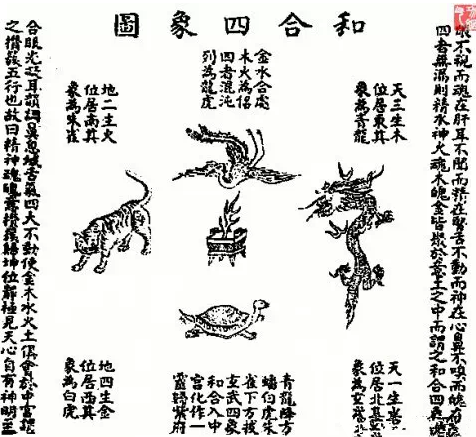 和合四象圖
不視而魂在肝耳不聞而精在腎舌不動而神在心鼻不嗅而魄在肺
四者無漏則精水神火魂木魄金皆聚於意土之中而謂之和合四象
天三生木
位居東真
象為青龍
金水合處
木火為侶
四者混沌
列為龍虎
地二生火
位居南真
象為朱雀
天一生
位居北真
象為玄
青龍降方
蟠白虎朱
雀下方披
玄武四象
和合入中
宮化作一
靈歸紫府
地四生金
位居西真
象為白虎
合眼光凝耳韻調鼻息緘舌氣四大不動使金木水火土俱會於中宮謂
之攢簇五行也故曰精神魂魄意攢簇歸坤位靜極見天心自有神明至